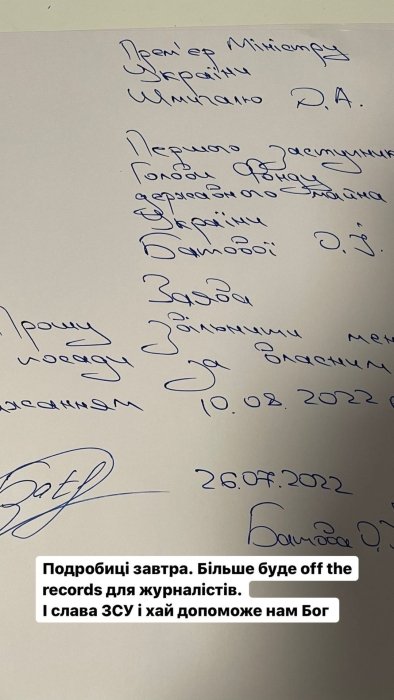 Прем'єр Міністру
України
Шмигалю Д.А.
Першого заступник
Голови Фонду
державного майна
України
Батової О.І.
Заява
Прошу звільнити мен
посади за власним
жанням 10.08.2022
26.07.2022
Батова О.
Подробиці завтра. Більше буде off the
records для журналістів.
І слава ЗСУ і хай допоможе нам Бог